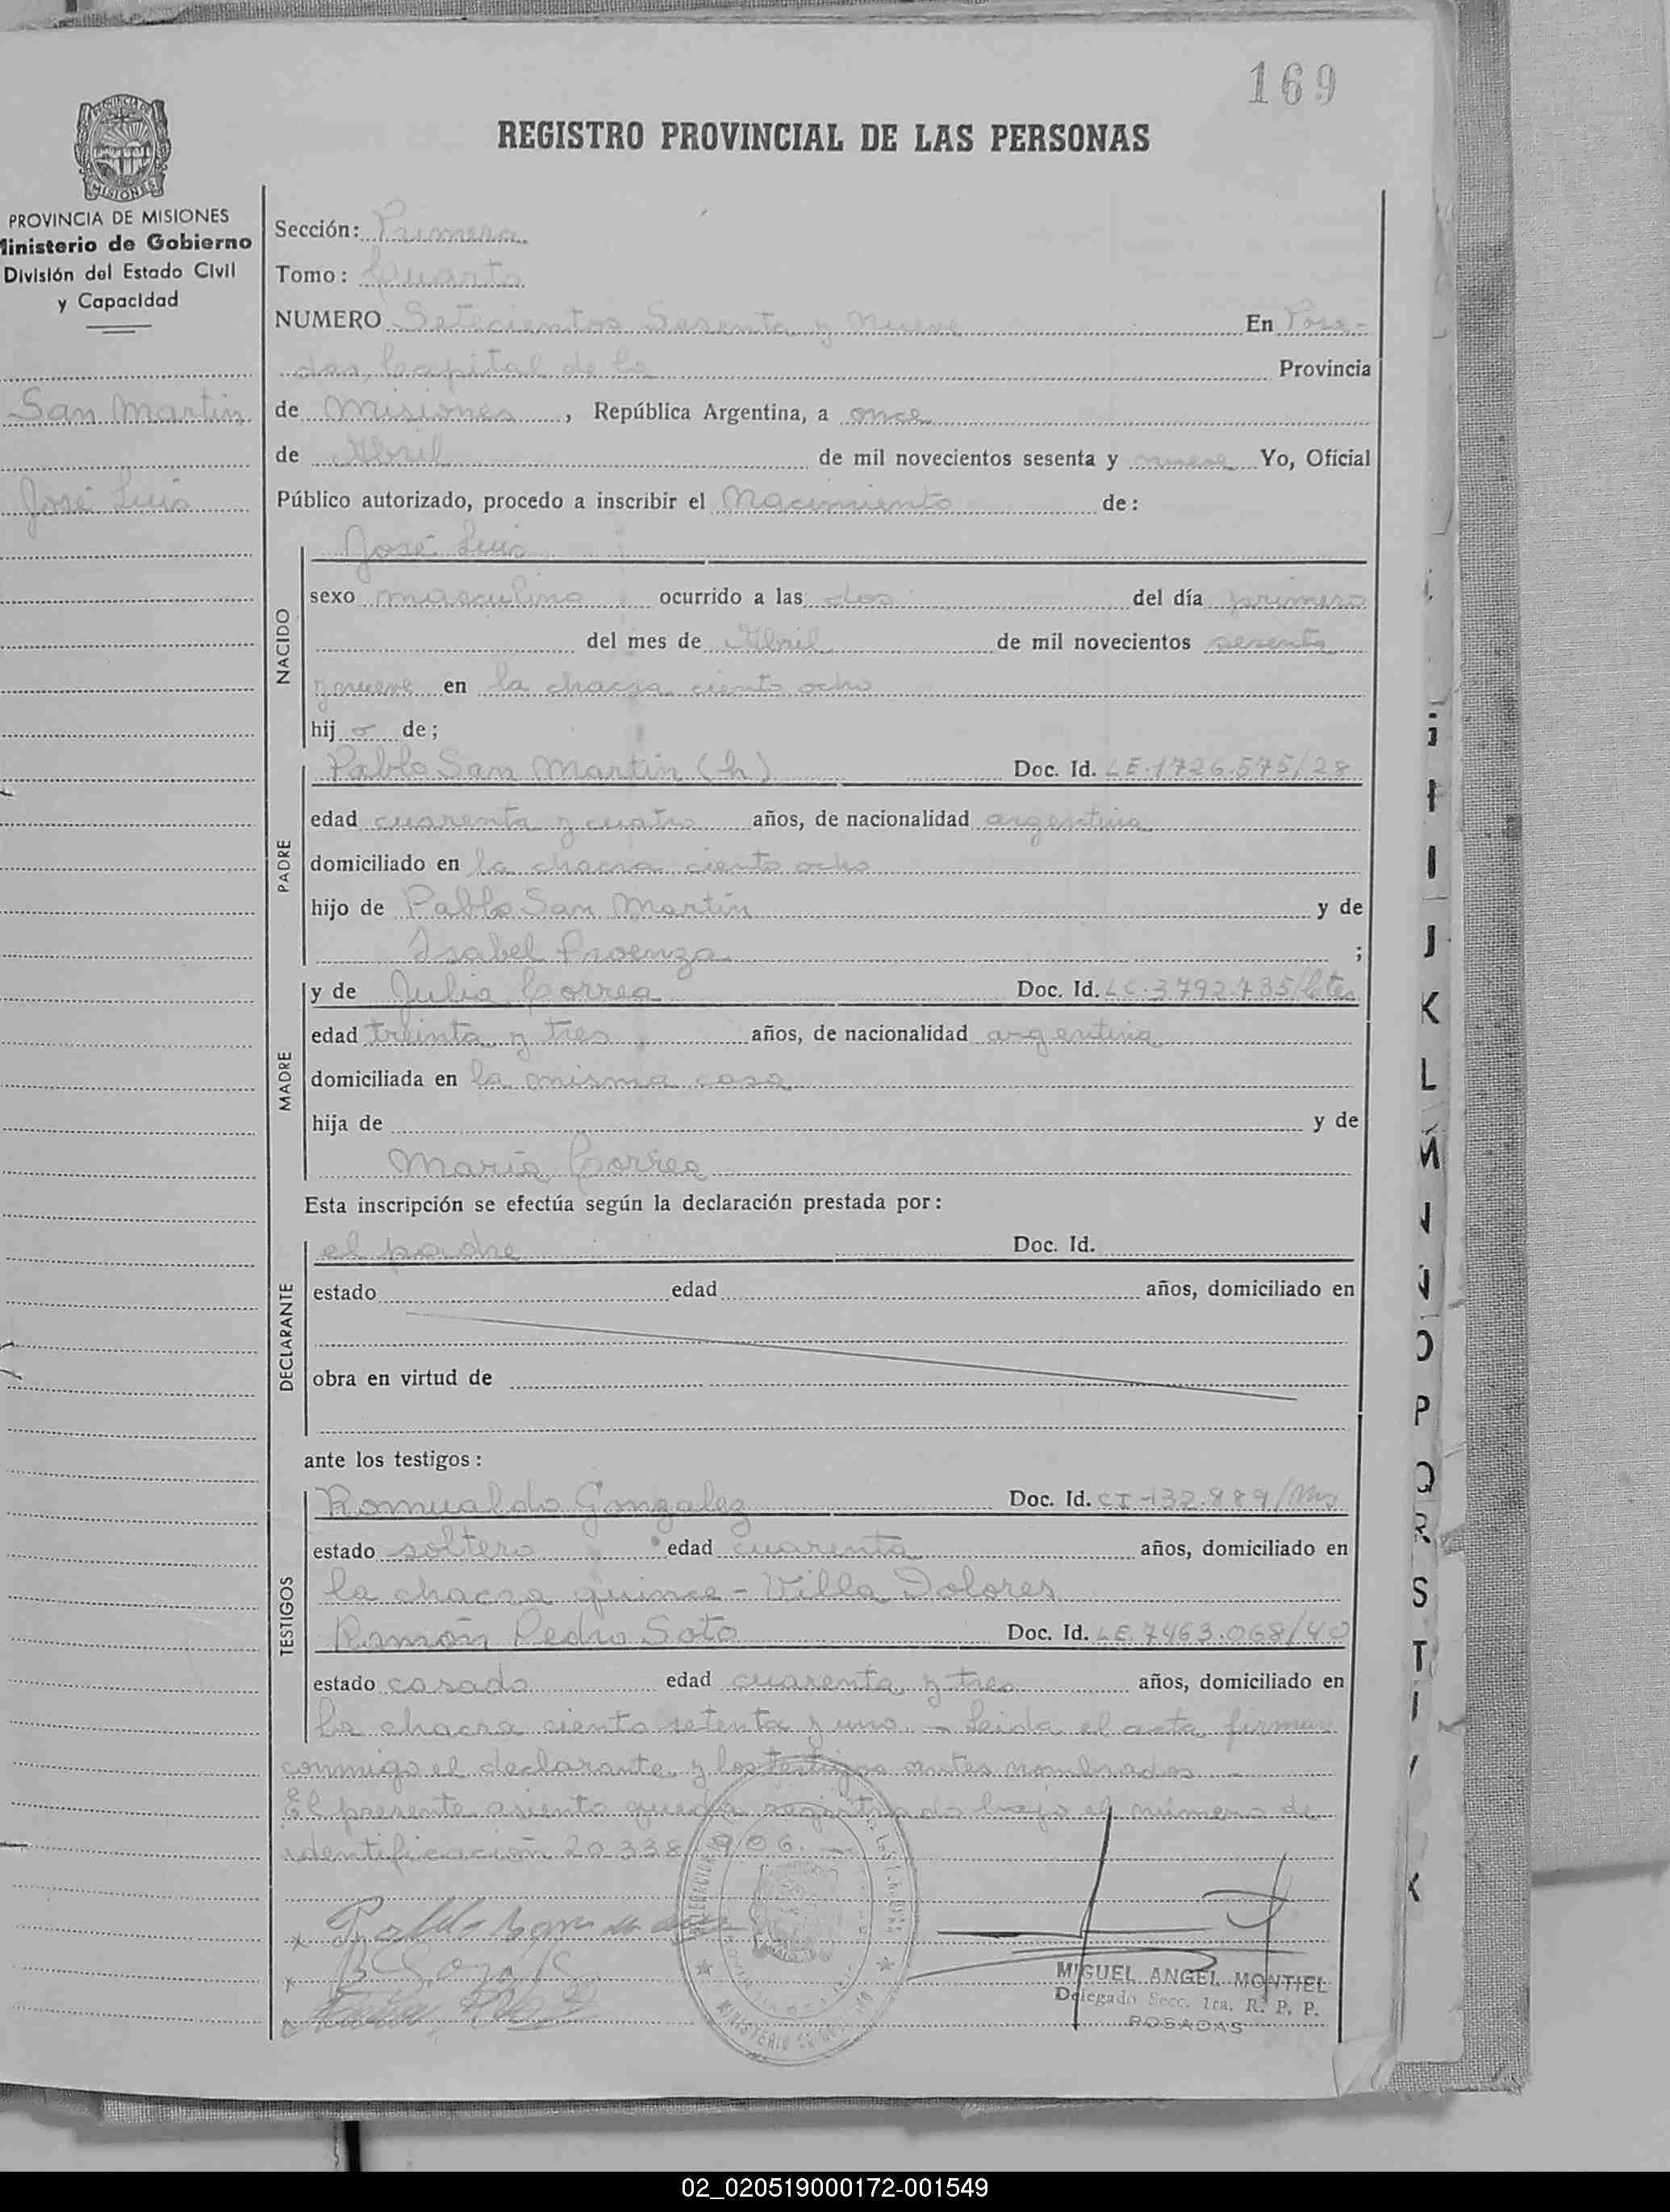 169
REGISTRO PROVINCIAL DE LAS PERSONAS
PROVINCIA DE MISIONES
Ministerio de Gobierno
División del Estado Civil
y Capacidad
San Martin
José Luis
Sección: Primera
Tomo: Cuarto
NUMERO Setecientos Sesenta y nueve En Posa-
das, Capital de la Provincia
de Misiones, República Argentina, a once
de Abril de mil novecientos sesenta y nueve Yo, Oficial
Público autorizado, procedo a inscribir el Nacimiento de:
NACIDO
José Luis
sexo masculino ocurrido a las dos del día primero
del mes de Abril de mil novecientos sesenta
y nueve en la chacra ciento ocho
hijo de;
PADRE
Pablo San Martin (h) Doc. Id. LE.1726.575/28
edad cuarenta y cuatro años, de nacionalidad argentina
domiciliado en la chacra ciento ocho
hijo de Pablo San Martin y de
Isabel Proenza ;
MADRE
y de Julia Correa Doc. Id. LC.3792.735/Ctes
edad treinta y tres años, de nacionalidad argentina
domiciliada en la misma casa
hija de y de
María Correa
Esta inscripción se efectúa según la declaración prestada por:
DECLARANTE
el padre Doc. Id.
estado edad años, domiciliado en
obra en virtud de
ante los testigos:
TESTIGOS
Romualdo Gonzalez Doc. Id. CI-132.889/Mns
estado soltero edad cuarenta años, domiciliado en
la chacra quince - Villa Dolores
Ramón Pedro Soto Doc. Id. LE.7463.068/40
estado casado edad cuarenta y tres años, domiciliado en
la chacra ciento setenta y uno. - Leida el acta firman
conmigo el declarante y los testigos antes nombrados -
El presente asiento queda registrado bajo el número de
identificación 20.338.906. -
MIGUEL ANGEL MONTIEL
Delegado Secc. 1ra. R. P. P.
POSADAS
I
J
K
L
M
N
O
P
Q
R
S
T
02_020519000172-001549